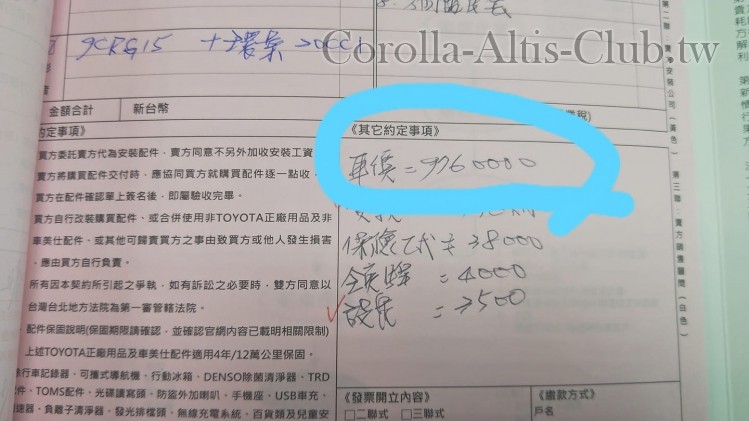 Corolla-Altis-Club.tw
9CRG15 +環景 20CC1
金額合計 新台幣
約定事項》
《其它約定事項》
車價=9760000
賣方委託賣方代為安裝配件，賣方同意不另外加收安裝工資
買方將購買配件交付時，應協同買方就購買配件逐一點收，
買方在配件確認單上簽名後，即屬驗收完畢。
買方自行改裝購買配件，或合併使用非TOYOTA正廠用品及非
車美仕配件，或其他可歸責買方之事由致買方或他人發生損害
，應由買方自行負責。
保險乙式≠38000
全車險 =4000
設定 =3500
所有因本契約所引起之爭執，如有訴訟之必要時，雙方同意以
台灣台北地方法院為第一審管轄法院。
配件保固說明(保固期限請確認，並確認官網內容已載明相關限制)
上述TOYOTA正廠用品及車美仕配件適用4年/12萬公里保固。
除行車記錄器、可攜式導航機、行動冰箱、DENSO除菌清淨器、TRD
件、TOMS配件、光碟讀寫頭、防盜外加喇叭、手機座、USB車充、
速器、負離子清淨器、發光排檔頭、無線充電系統、百貨類及兒童安
《發票開立內容》
□二聯式 □三聯式
《繳款方式》
戶名
第二聯：賣淨安裝公司(黃色)
第三聯：賣方銷售顧問(白色)